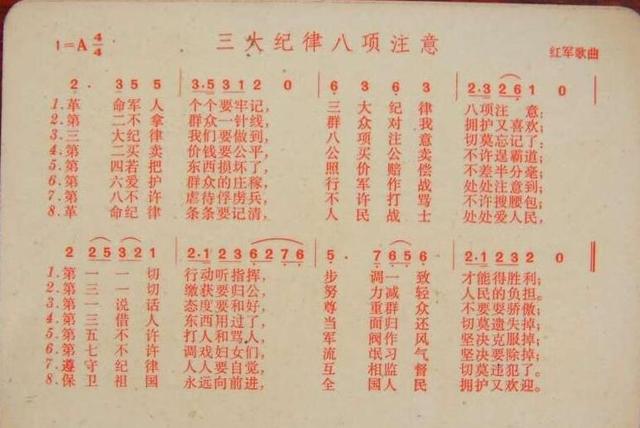 1=A 4/4 三大纪律八项注意 红军歌曲
2. 3 5 5 3·5 3 1 2 0 6 3 3 6 2·3 2 6 1 0
1.革命军人个个要牢记, 三大纪律八项注意:
2.第二不拿群众一针线, 群众对我拥护又喜欢;
3.三大纪律我们要做到, 八项注意切莫忘记了;
4.第二买卖价钱要公平, 公买公卖不许逞霸道;
5.第四若把东西损坏了, 照价赔偿不差半分毫;
6.第六爱护群众的庄稼, 行军作战处处注意到;
7.第八不许虐待俘虏兵, 不许打骂不许搜腰包;
8.革命纪律条条要记清, 人民战士处处爱人民;
2 2 5 3 2 1 2·1 2 3 6 2 7 6 5. 7 6 5 6 2·1 2 3 2 0
1.第一一切行动听指挥, 步调一致才能得胜利;
2.第三一切缴获要归公, 努力减轻人民的负担。
3.第一说话态度要和好, 尊重群众不要耍骄傲;
4.第三借人东西用过了, 当面归还切莫遗失掉;
5.第五不许打人和骂人, 军阀作风坚决克服掉;
6.第七不许调戏妇女们, 流氓习气坚决要除掉;
7.遵守纪律人人要自觉, 互相监督切莫违犯了;
8.保卫祖国永远向前进, 全国人民拥护又欢迎。